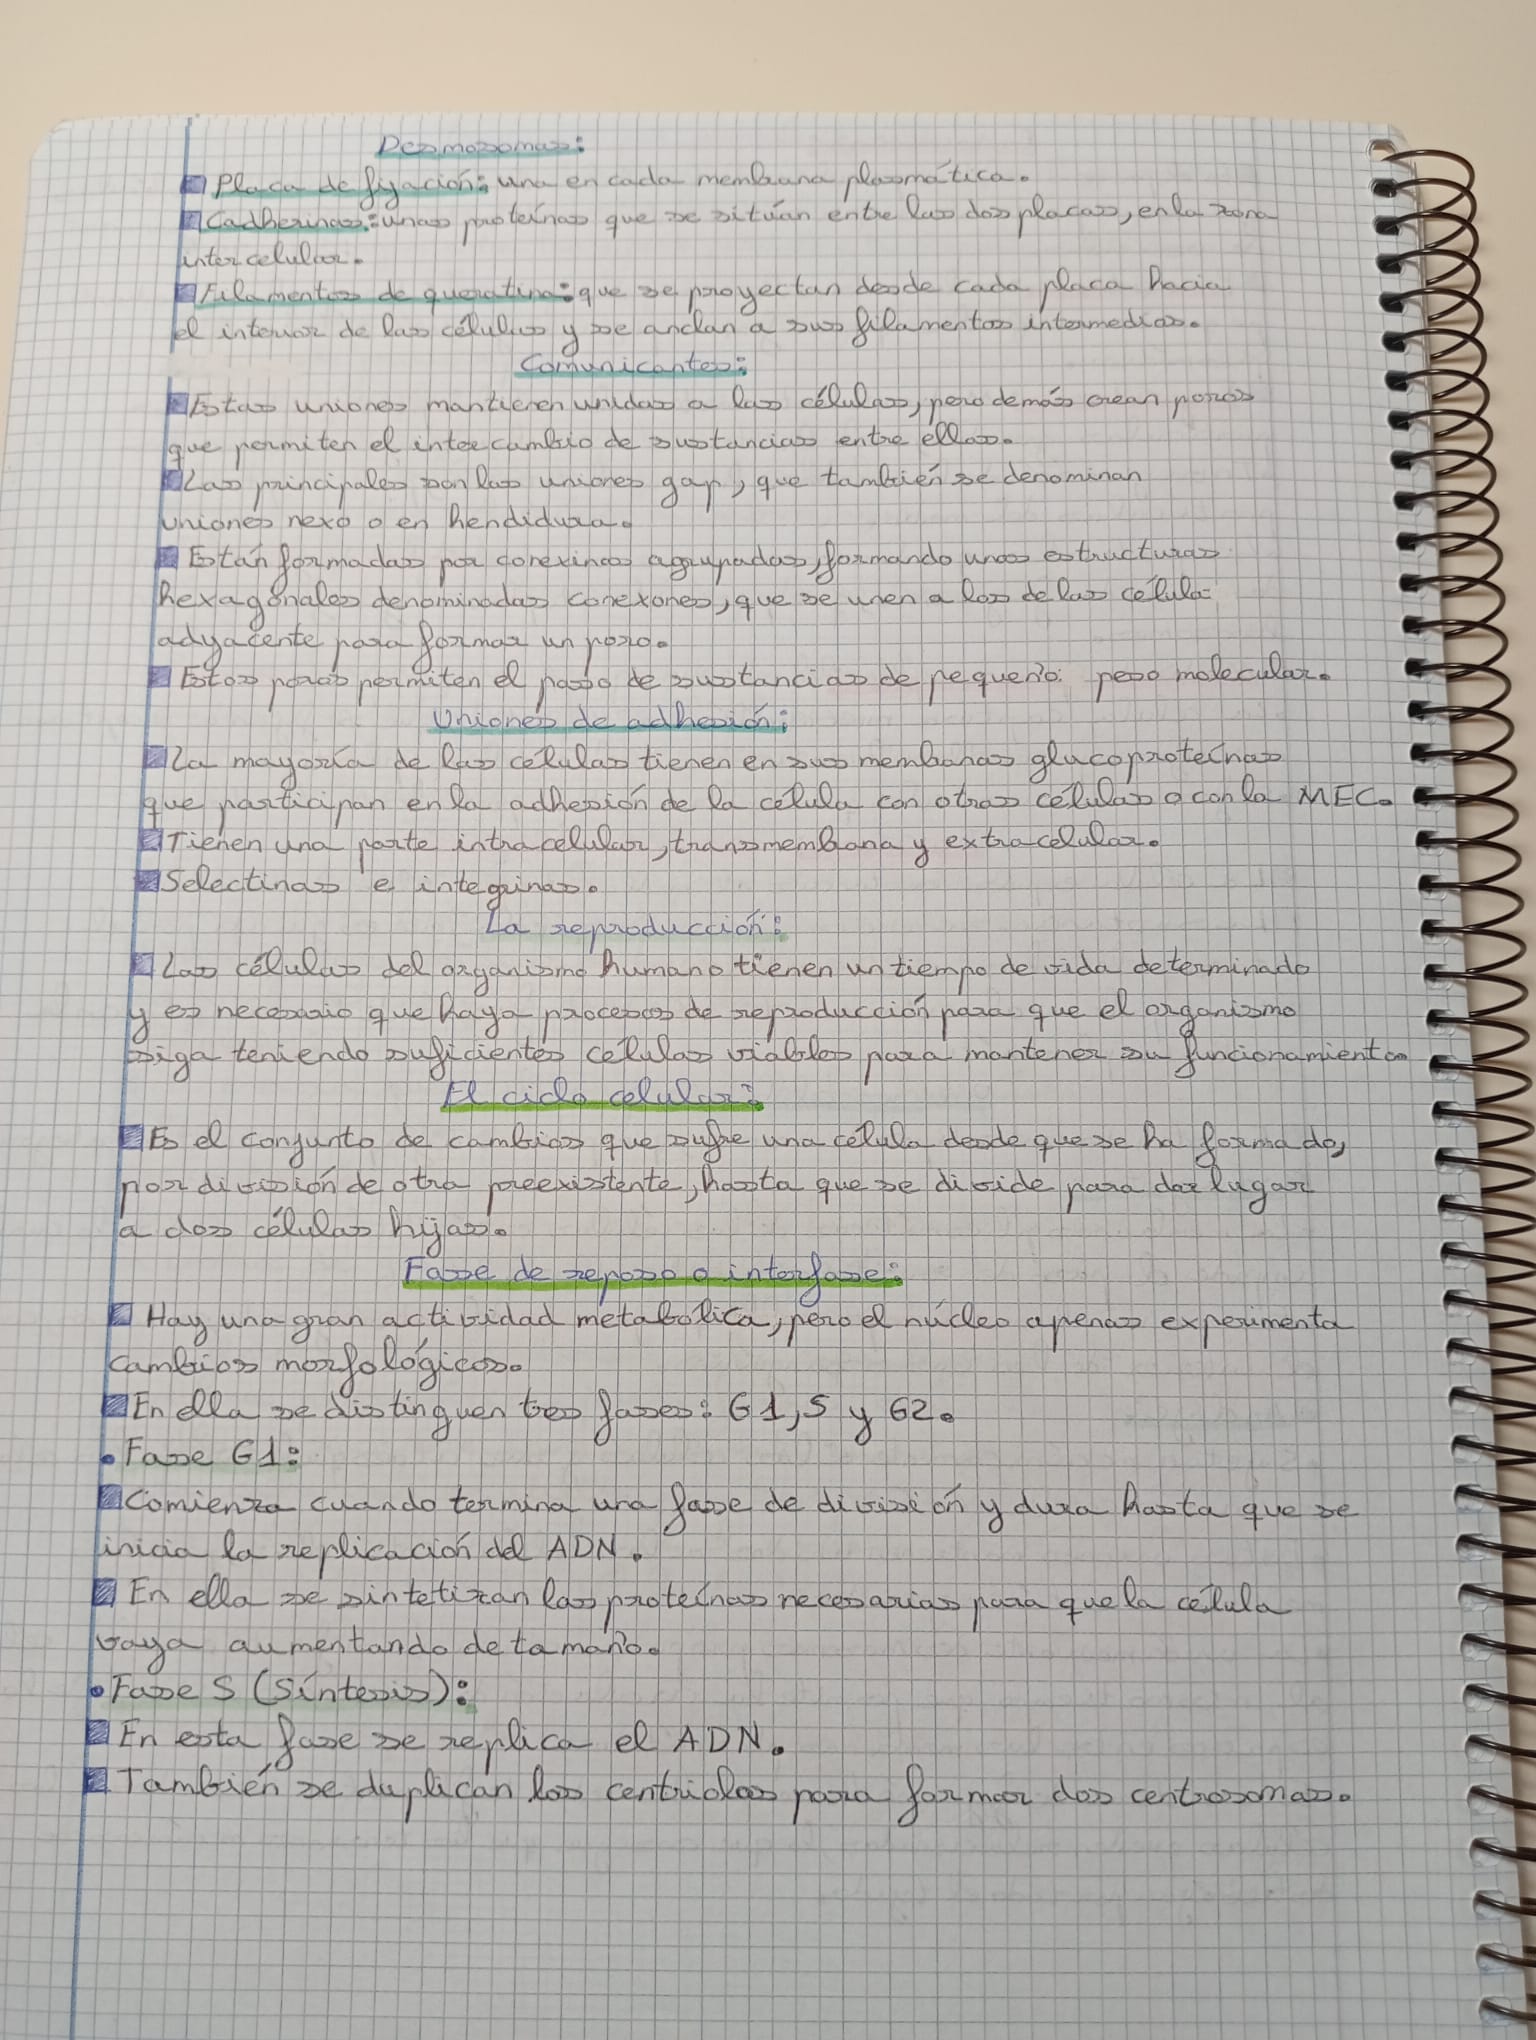 Desmosomas:
Placa de fijación: una en cada membrana plasmática.
Cadherinas: unas proteínas que se sitúan entre las dos placas, en la zona
intercelular.
Filamentos de queratina: que se proyectan desde cada placa hacia
el interior de las células y se anclan a sus filamentos intermedios.
Comunicantes:
Estas uniones mantienen unidas a las células, pero demás crean poros
que permiten el intercambio de sustancias entre ellas.
Las principales son las uniones gap, que también se denominan
uniones nexo o en hendidura.
Están formadas por conexinas agrupadas, formando unas estructuras
hexagonales denominadas conexones, que se unen a los de las célula
adyacente para formar un poro.
Estos poros permiten el paso de sustancias de pequeño peso molecular.
Uniones de adhesión:
La mayoría de las células tienen en sus membranas glucoproteínas
que participan en la adhesión de la célula con otras células o con la MEC.
Tienen una parte intracelular, transmembrana y extracelular.
Selectinas e integrinas.
La reproducción:
Las células del organismo humano tienen un tiempo de vida determinado
y es necesario que haya procesos de reproducción para que el organismo
siga teniendo suficientes células viables para mantener su funcionamiento
El ciclo celular:
Es el conjunto de cambios que sufre una célula desde que se ha formado,
por división de otra preexistente, hasta que se divide para dar lugar
a dos células hijas.
Fase de reposo o interfase:
Hay una gran actividad metabólica, pero el núcleo apenas experimenta
cambios morfológicos.
En ella se distinguen tres fases: G1, S y G2.
• Fase G1:
Comienza cuando termina una fase de división y dura hasta que se
inicia la replicación del ADN.
En ella se sintetizan las proteínas necesarias para que la célula
vaya aumentando de tamaño.
• Fase S (Síntesis):
En esta fase se replica el ADN.
También se duplican los centriolos para formar dos centrosomas.